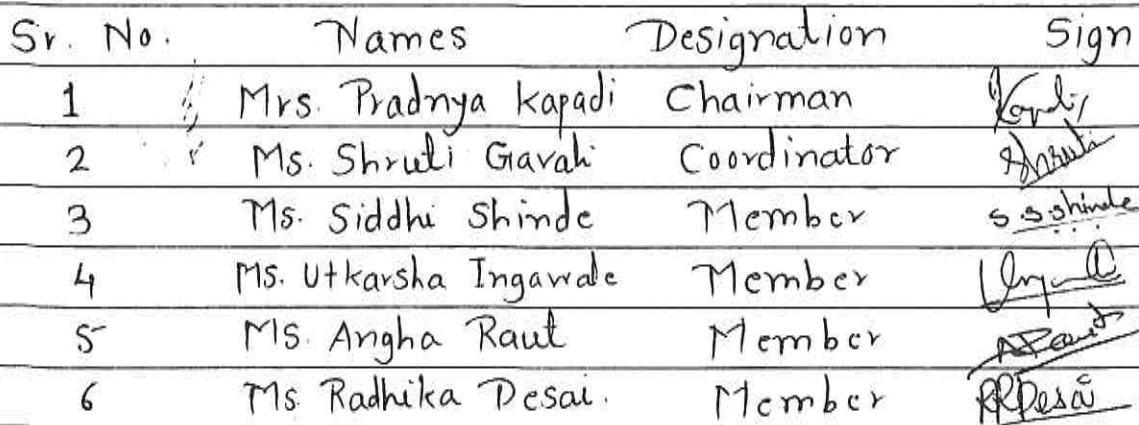 Sr. No. Names Designation Sign
1 Mrs. Pradnya Kapadi Chairman
2 Ms. Shruti Gavali Coordinator Shruti
3 Ms. Siddhi Shinde Member S S Shinde
4 Ms. Utkarsha Ingawale Member
5 Ms. Angha Raut Member ARaut
6 Ms Radhika Desai. Member RRDesai